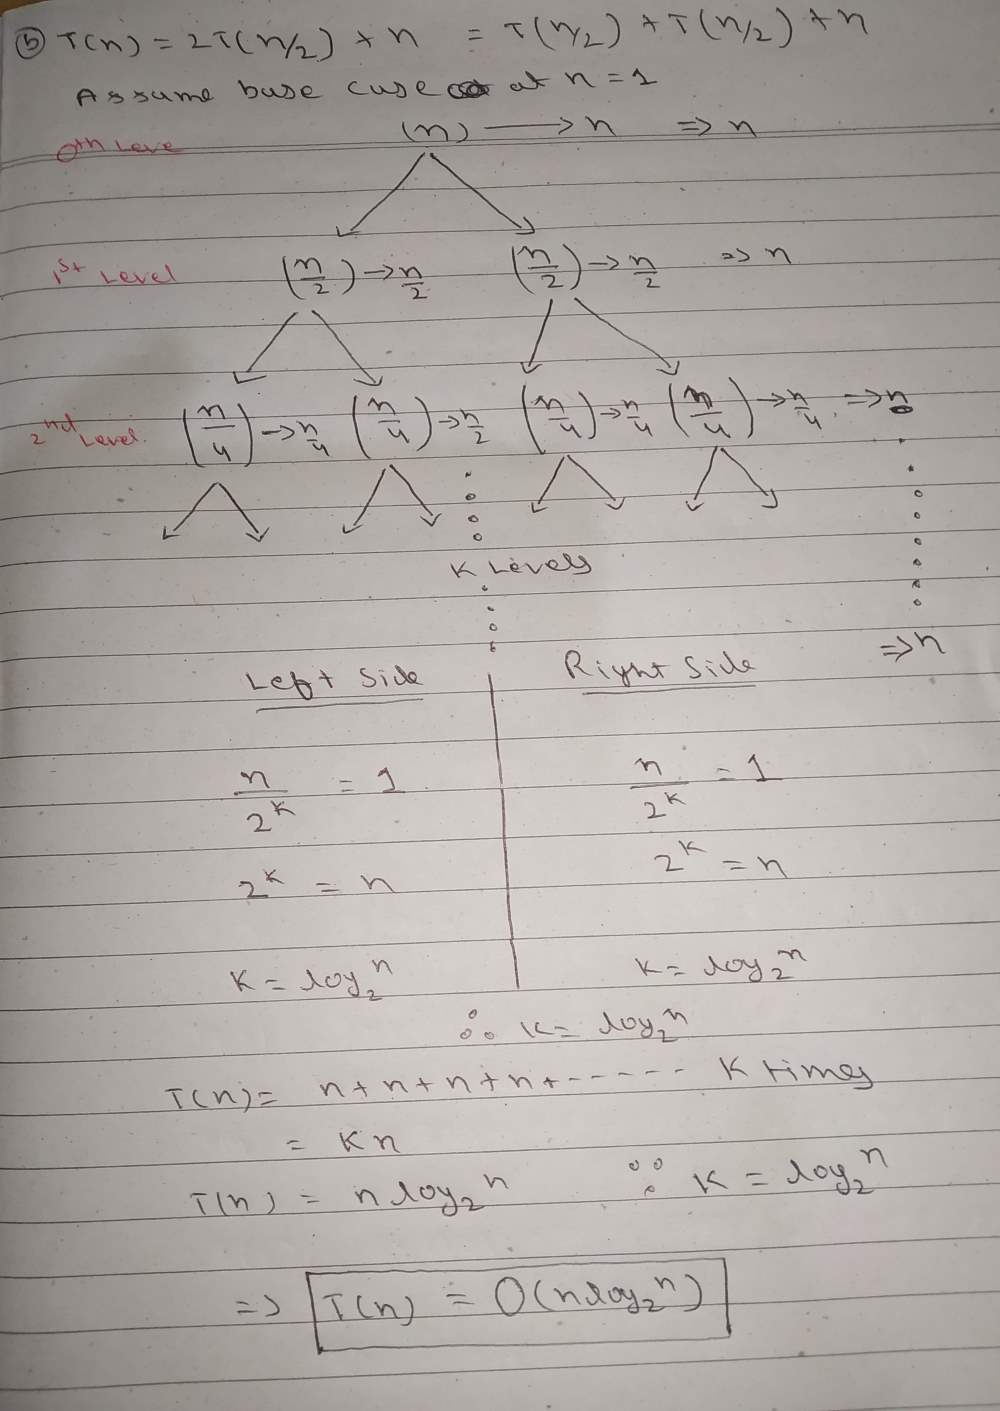 (b) T(n) = 2T(n/2) + n = T(n/2) + T(n/2) + n
Assume base case at n = 1
0th Leve (n) → n ⇒ n
1st Level (n/2) → n/2 (n/2) → n/2 ⇒ n
2nd Level. (n/4) → n/4 (n/4) → n/2 (n/4) → n/4 (n/4) → n/4 ⇒ n
K Levels
⇒ n
Left Side Right Side
n/2^K = 1 n/2^K = 1
2^K = n 2^K = n
K = log₂ⁿ K = log₂ⁿ
∴ K = log₂ⁿ
T(n) = n + n + n + n + ------ K times
= Kn
T(n) = n log₂ⁿ ∵ K = log₂ⁿ
⇒ T(n) = O(n log₂ⁿ)